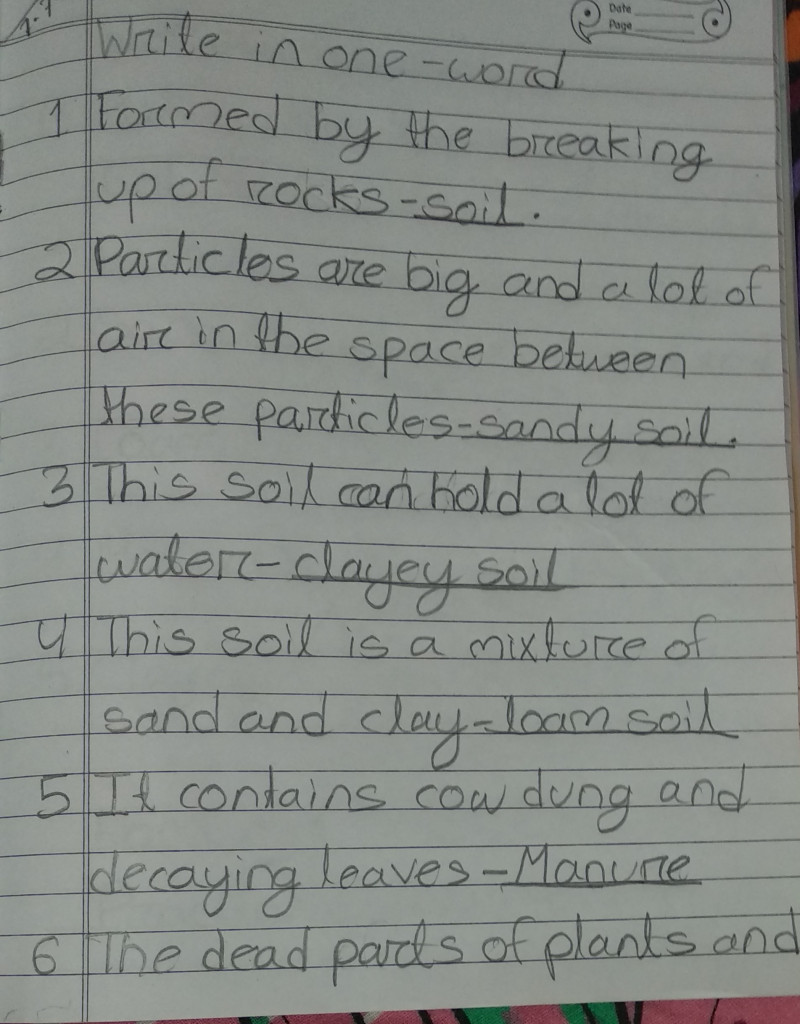 Date
Page
Write in one-word
1 Formed by the breaking
up of rocks-soil.
2 Particles are big and a lot of
air in the space between
these particles-sandy soil.
3 This soil can hold a lot of
water-clayey soil
4 This soil is a mixture of
sand and clay-loam soil
5 It contains cow dung and
decaying leaves-Manure
6 The dead parts of plants and